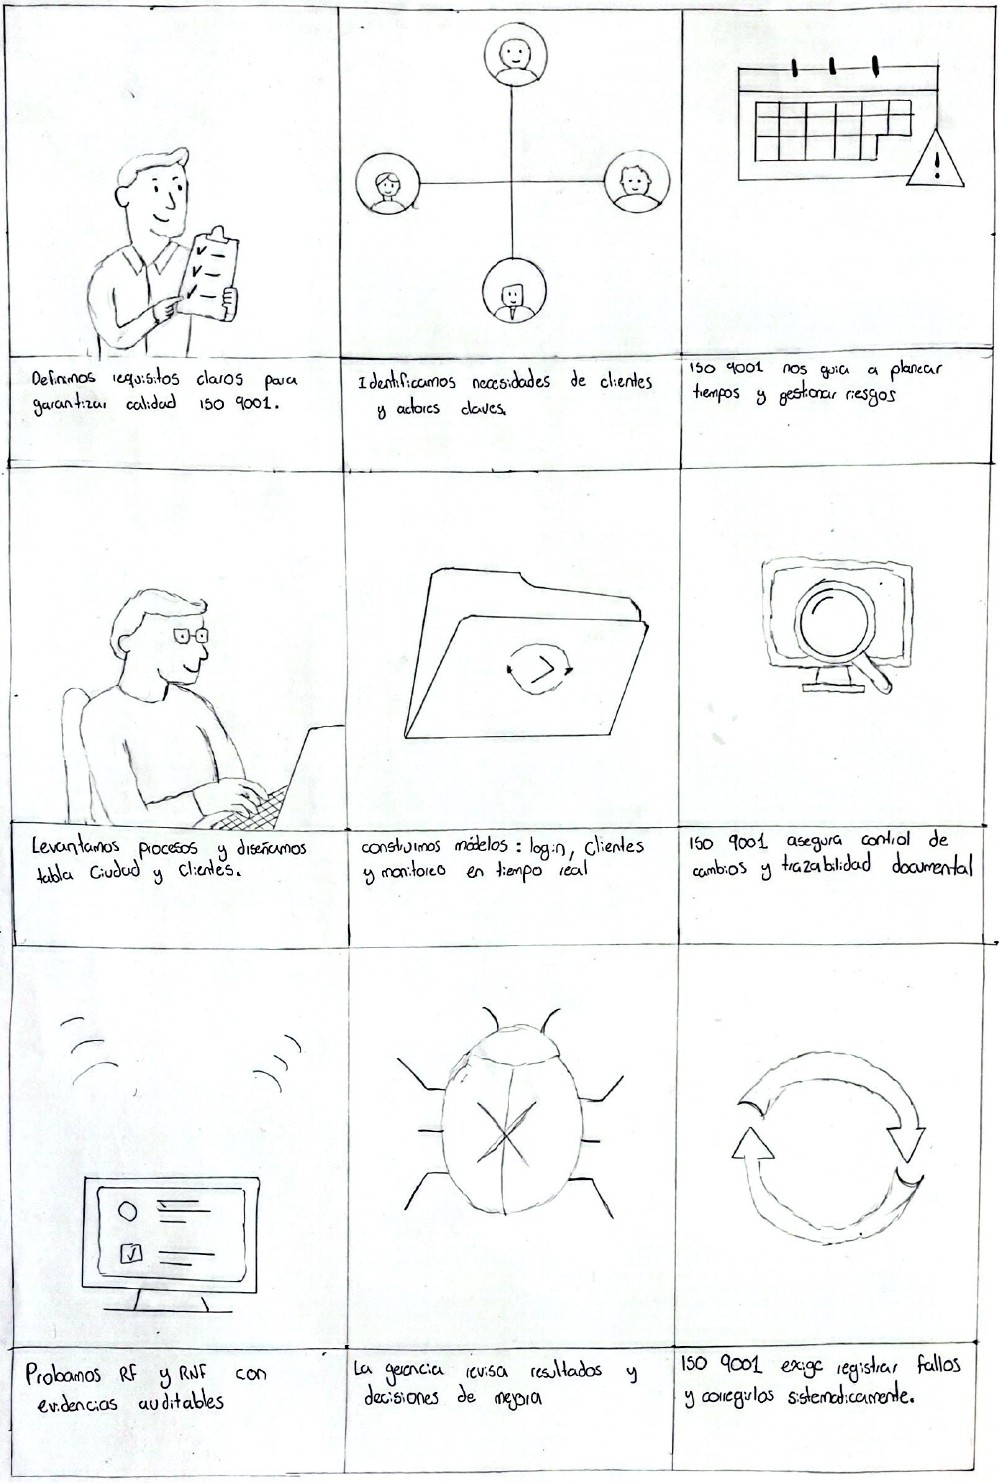 Definimos requisitos claros para
garantizar calidad ISO 9001.
Identificamos necesidades de clientes
y actores claves.
ISO 9001 nos guia a planear
tiempos y gestionar riesgos
Levantamos procesos y diseñamos
tabla Ciudad y Clientes.
construimos módelos : login, Clientes
y monitoreo en tiempo real
ISO 9001 asegura control de
cambios y trazabilidad documental
Probamos RF y RNF con
evidencias auditables
La gerencia revisa resultados y
decisiones de mejora
ISO 9001 exige registrar fallos
y corregirlos sistematicamente.